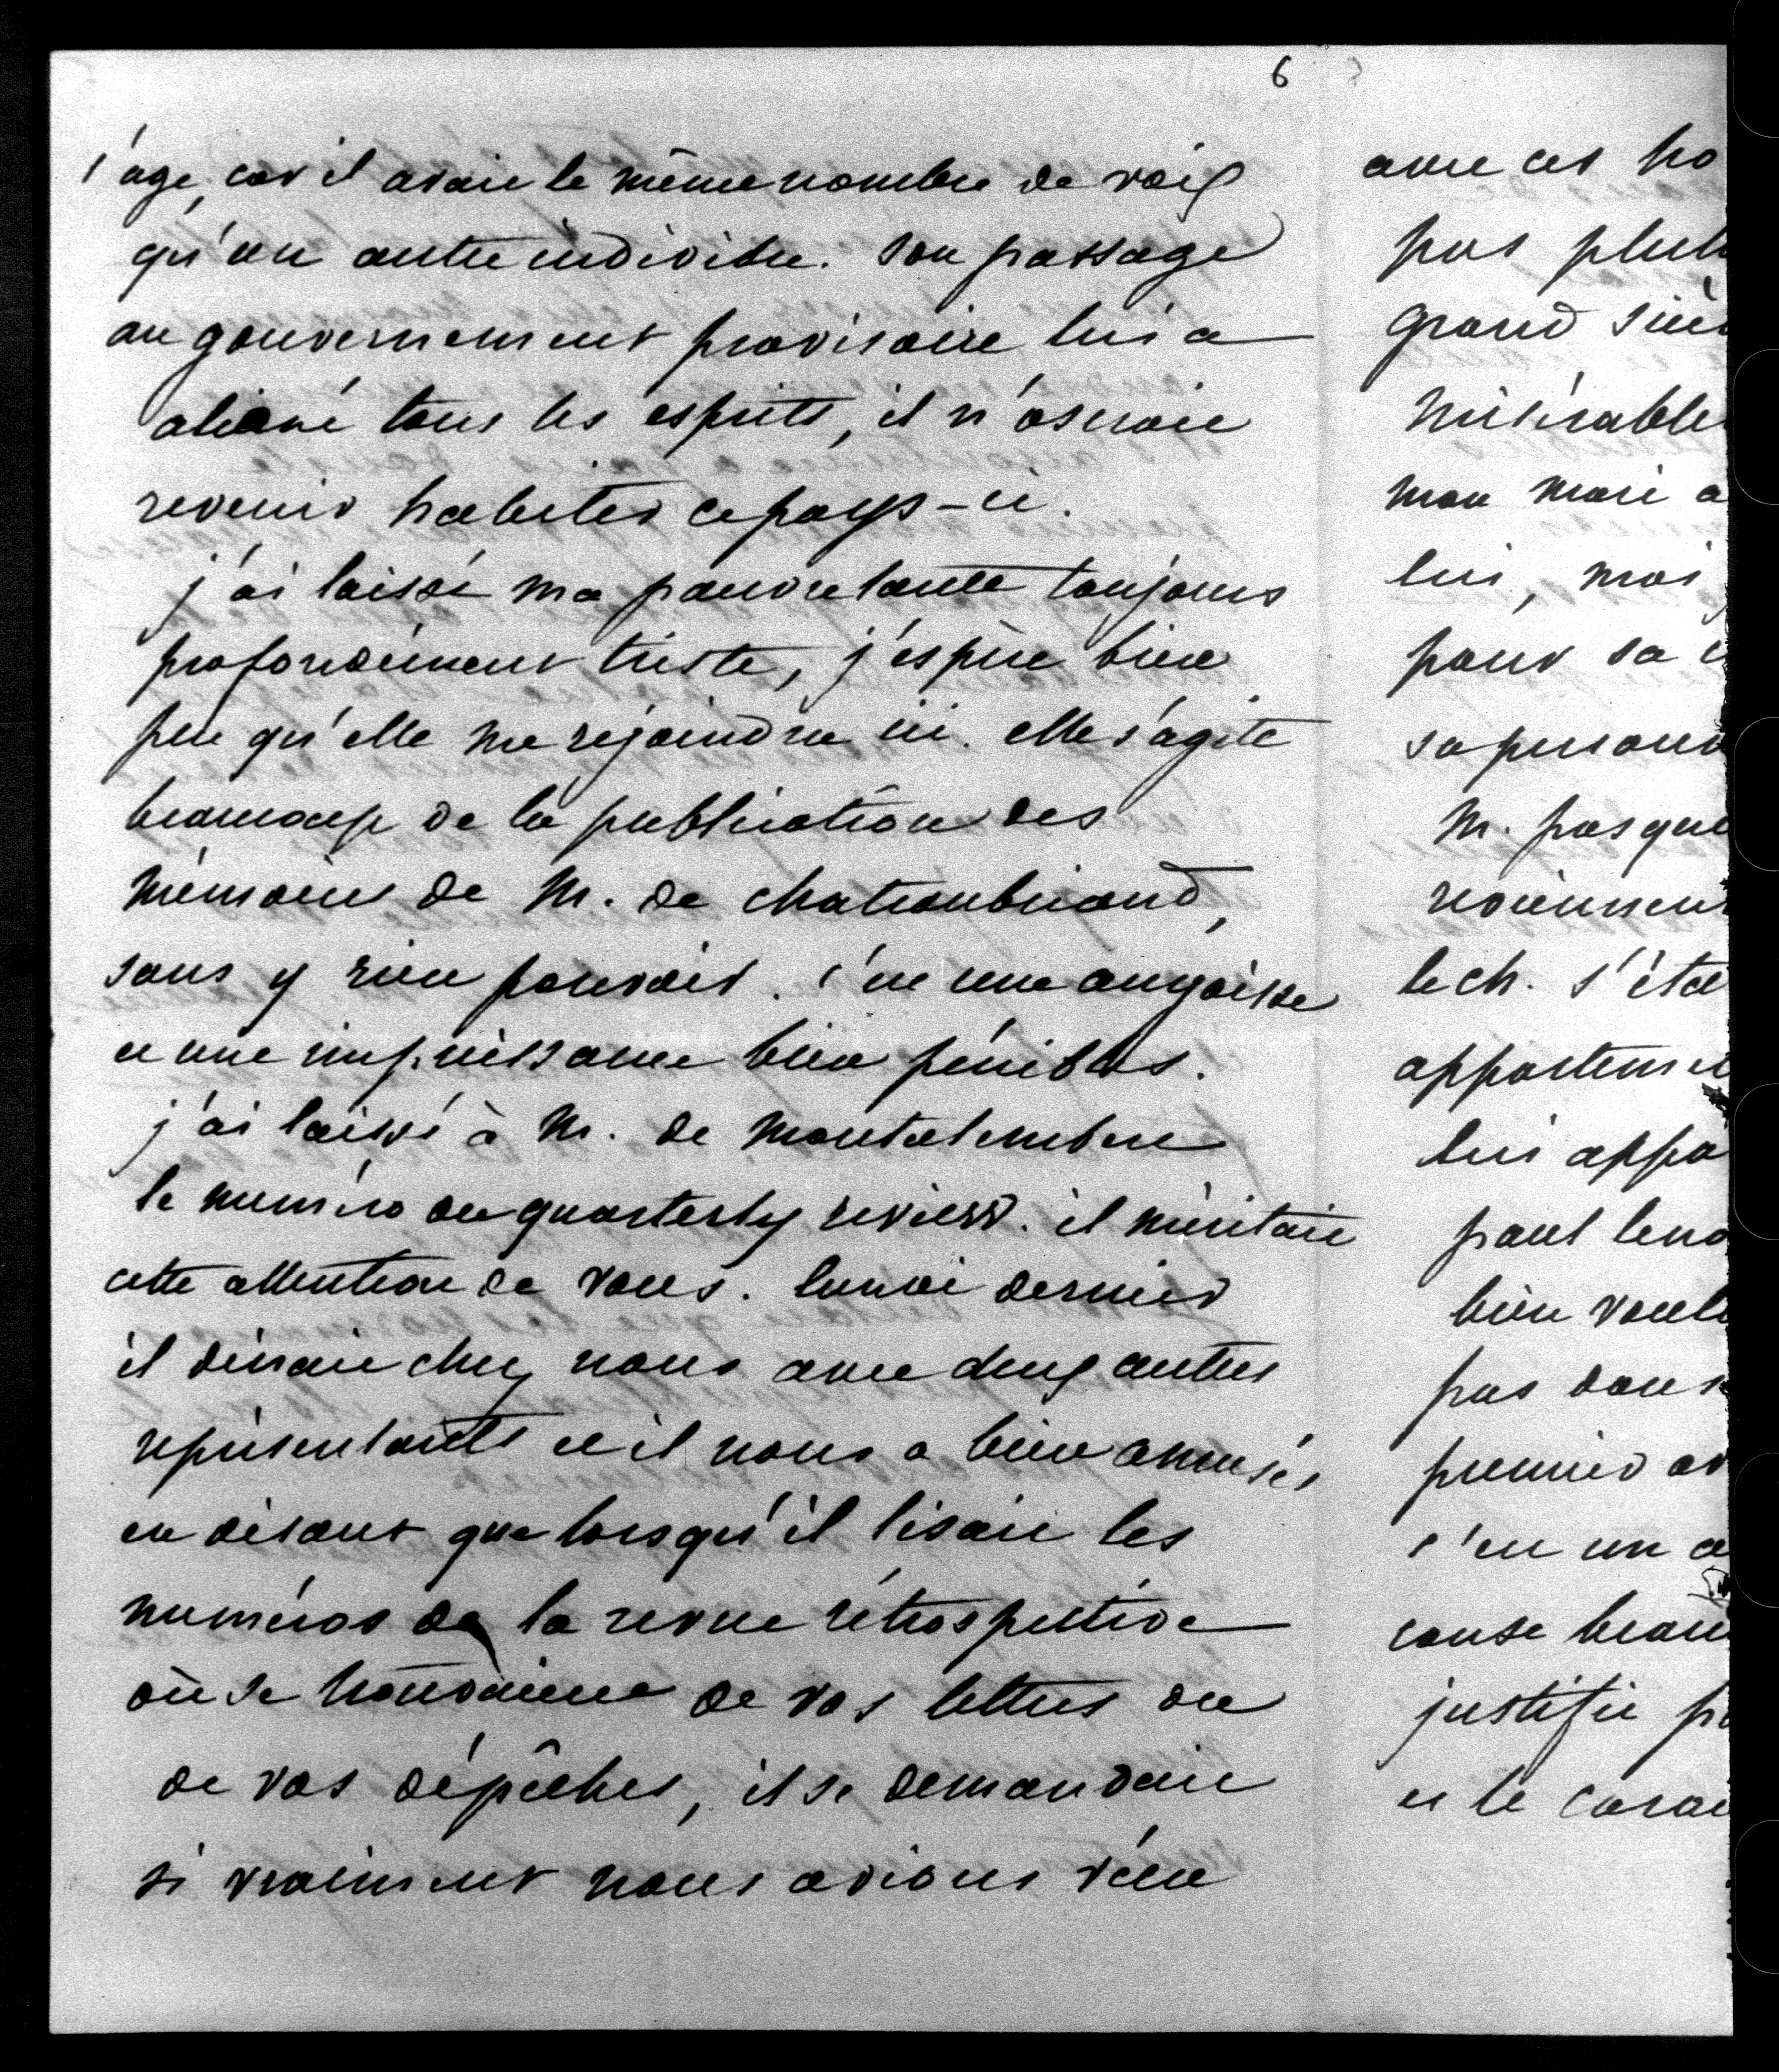 6
l'age, car il avait le même nombre de voix
qu'un autre individu. Son passage
au gouvernement provisoire lui a
aliéné tous les esprits, il n'oserait
revenir habiter ce pays-ci.
j'ai laissé ma pauvre tante toujours
profondément triste, j'espère bien
peu qu'elle me rejoindra ici. elle s'agite
beaucoup de la publication des
mémoires de M. de chateaubriand,
sans y rien pouvoir. c'est une angoisse
et une impuissance bien pénibles.
j'ai laissé à M. de Montalembert
le numéro du quarterly review. il méritait
cette attention de vous. lundi dernier
il dinait chez nous avec deux autres
représentants et il nous a bien amusés
en disant que lorsqu'il lisait les
numéros de la revue rétrospective
où se trouvaient de vos lettres ou
de vos dépêches, il se demandait
si vraiment nous avions vécu
avec ces ho
pas plut
grand siè
misérable
mon mari a
lui, moi
pour sa
sa person
M. pasqu
reviennent
le ch. s'éta
appartem
lui appa
paul leno
bien voul
pas dans
premier av
c'est un a
cause beau
justifie p
et le carac